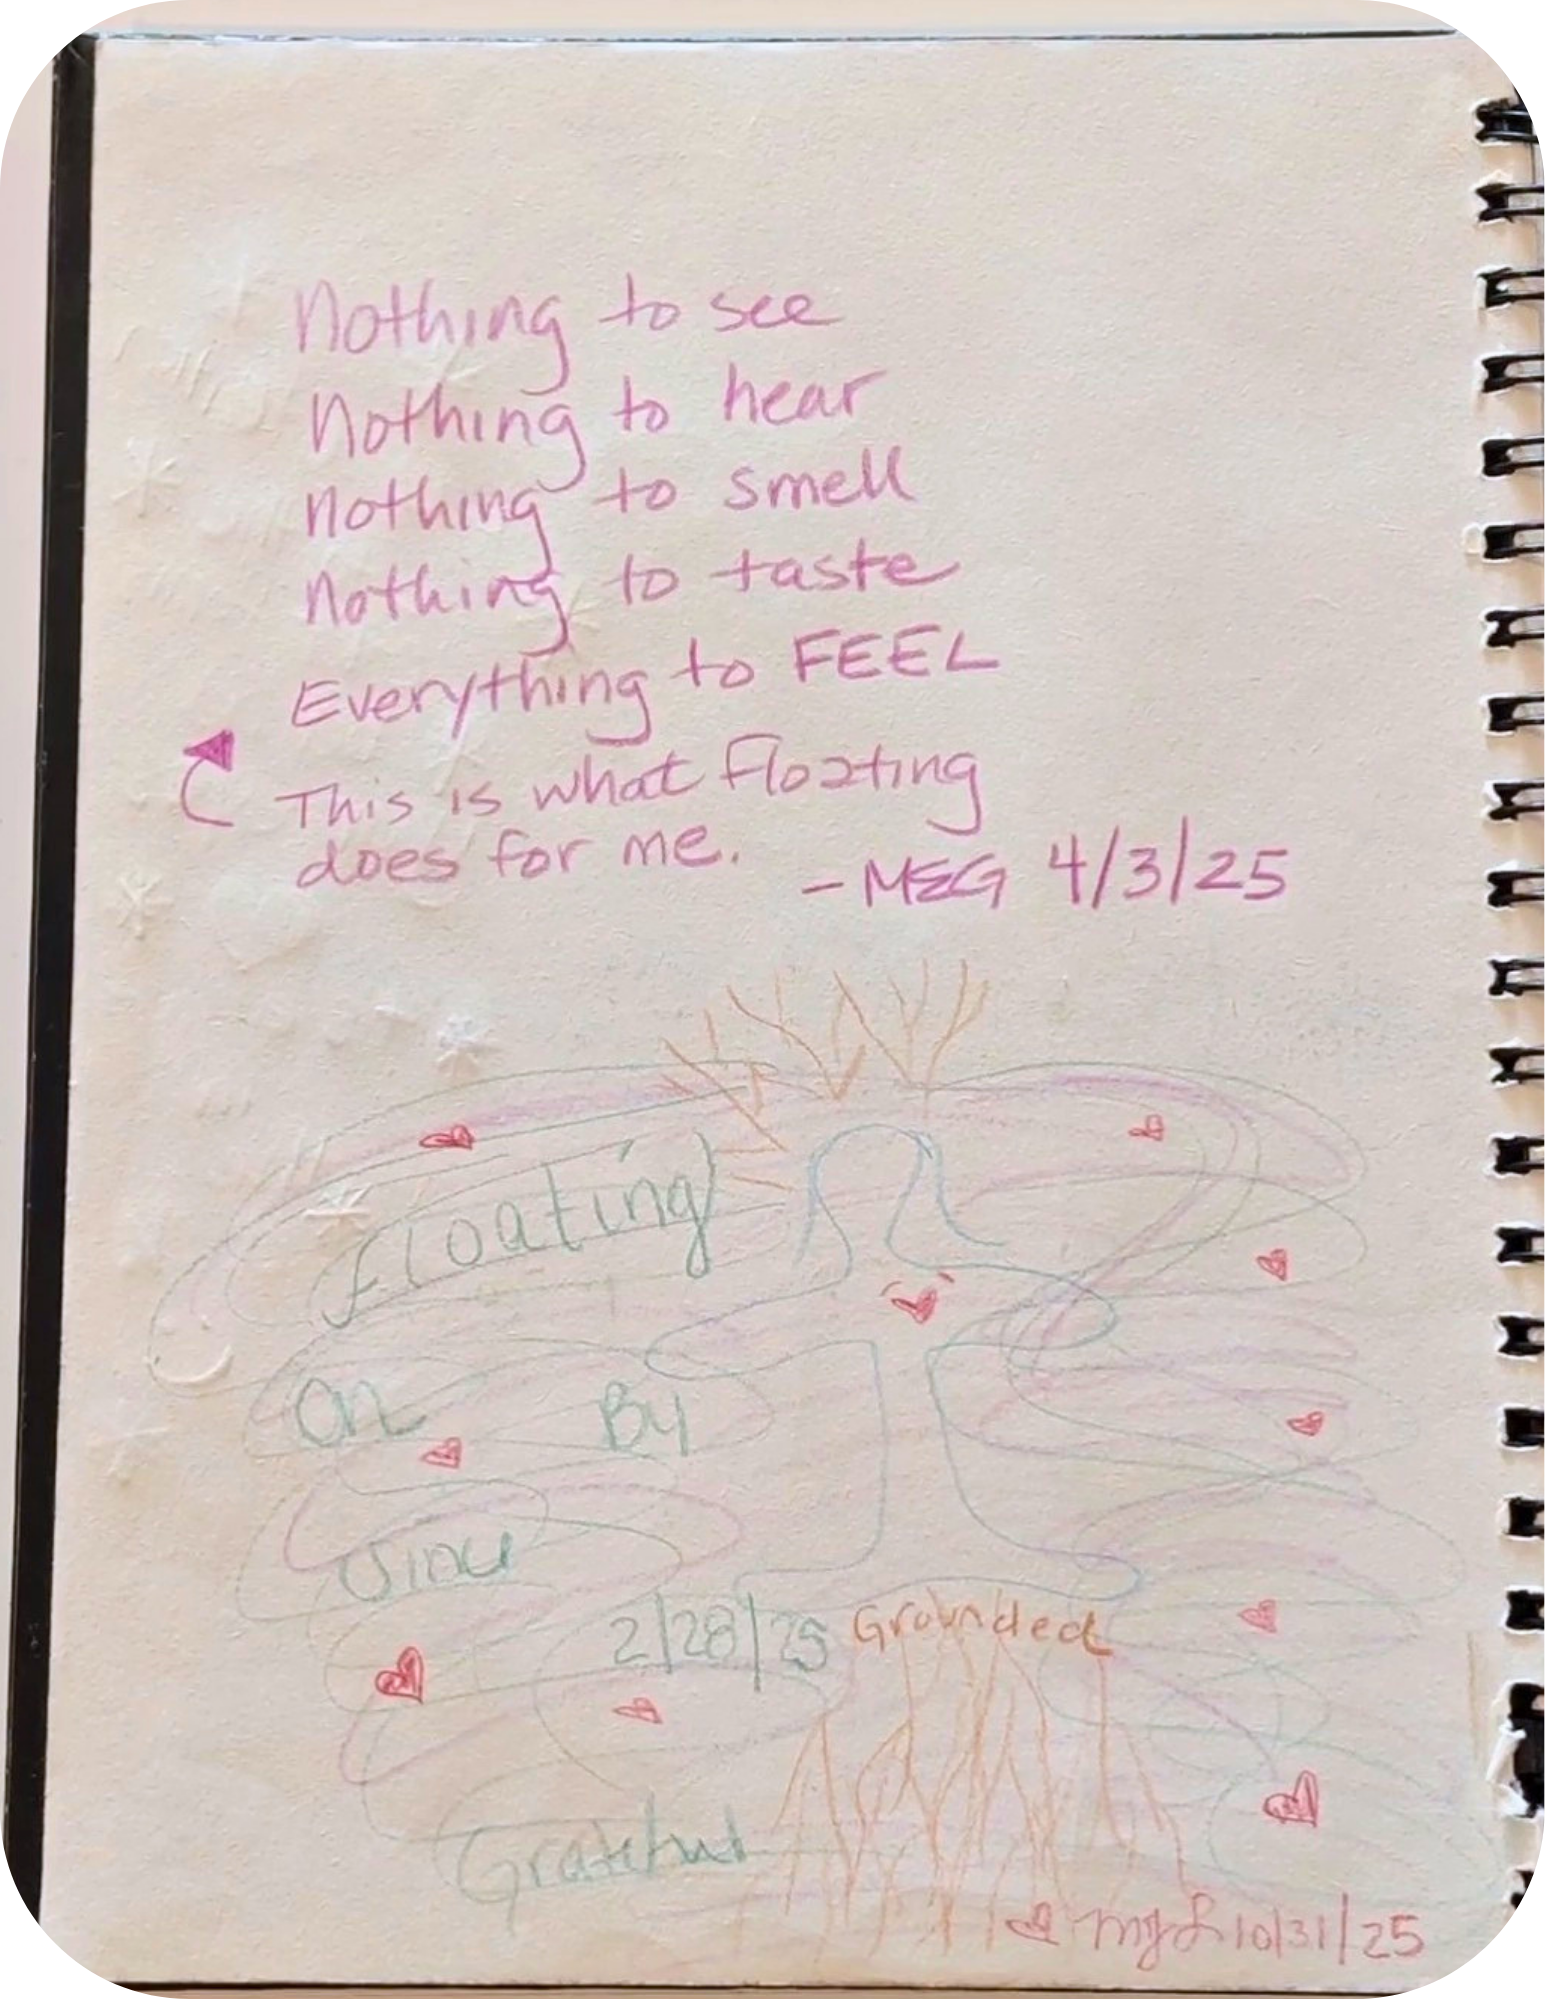 Nothing to see
Nothing to hear
nothing to smell
nothing to taste
Everything to FEEL
This is what Floating
does for me.
- MEG 4/3/25
Floating
On By
Since
2/28/25 Grounded
Grateful
10/31/25